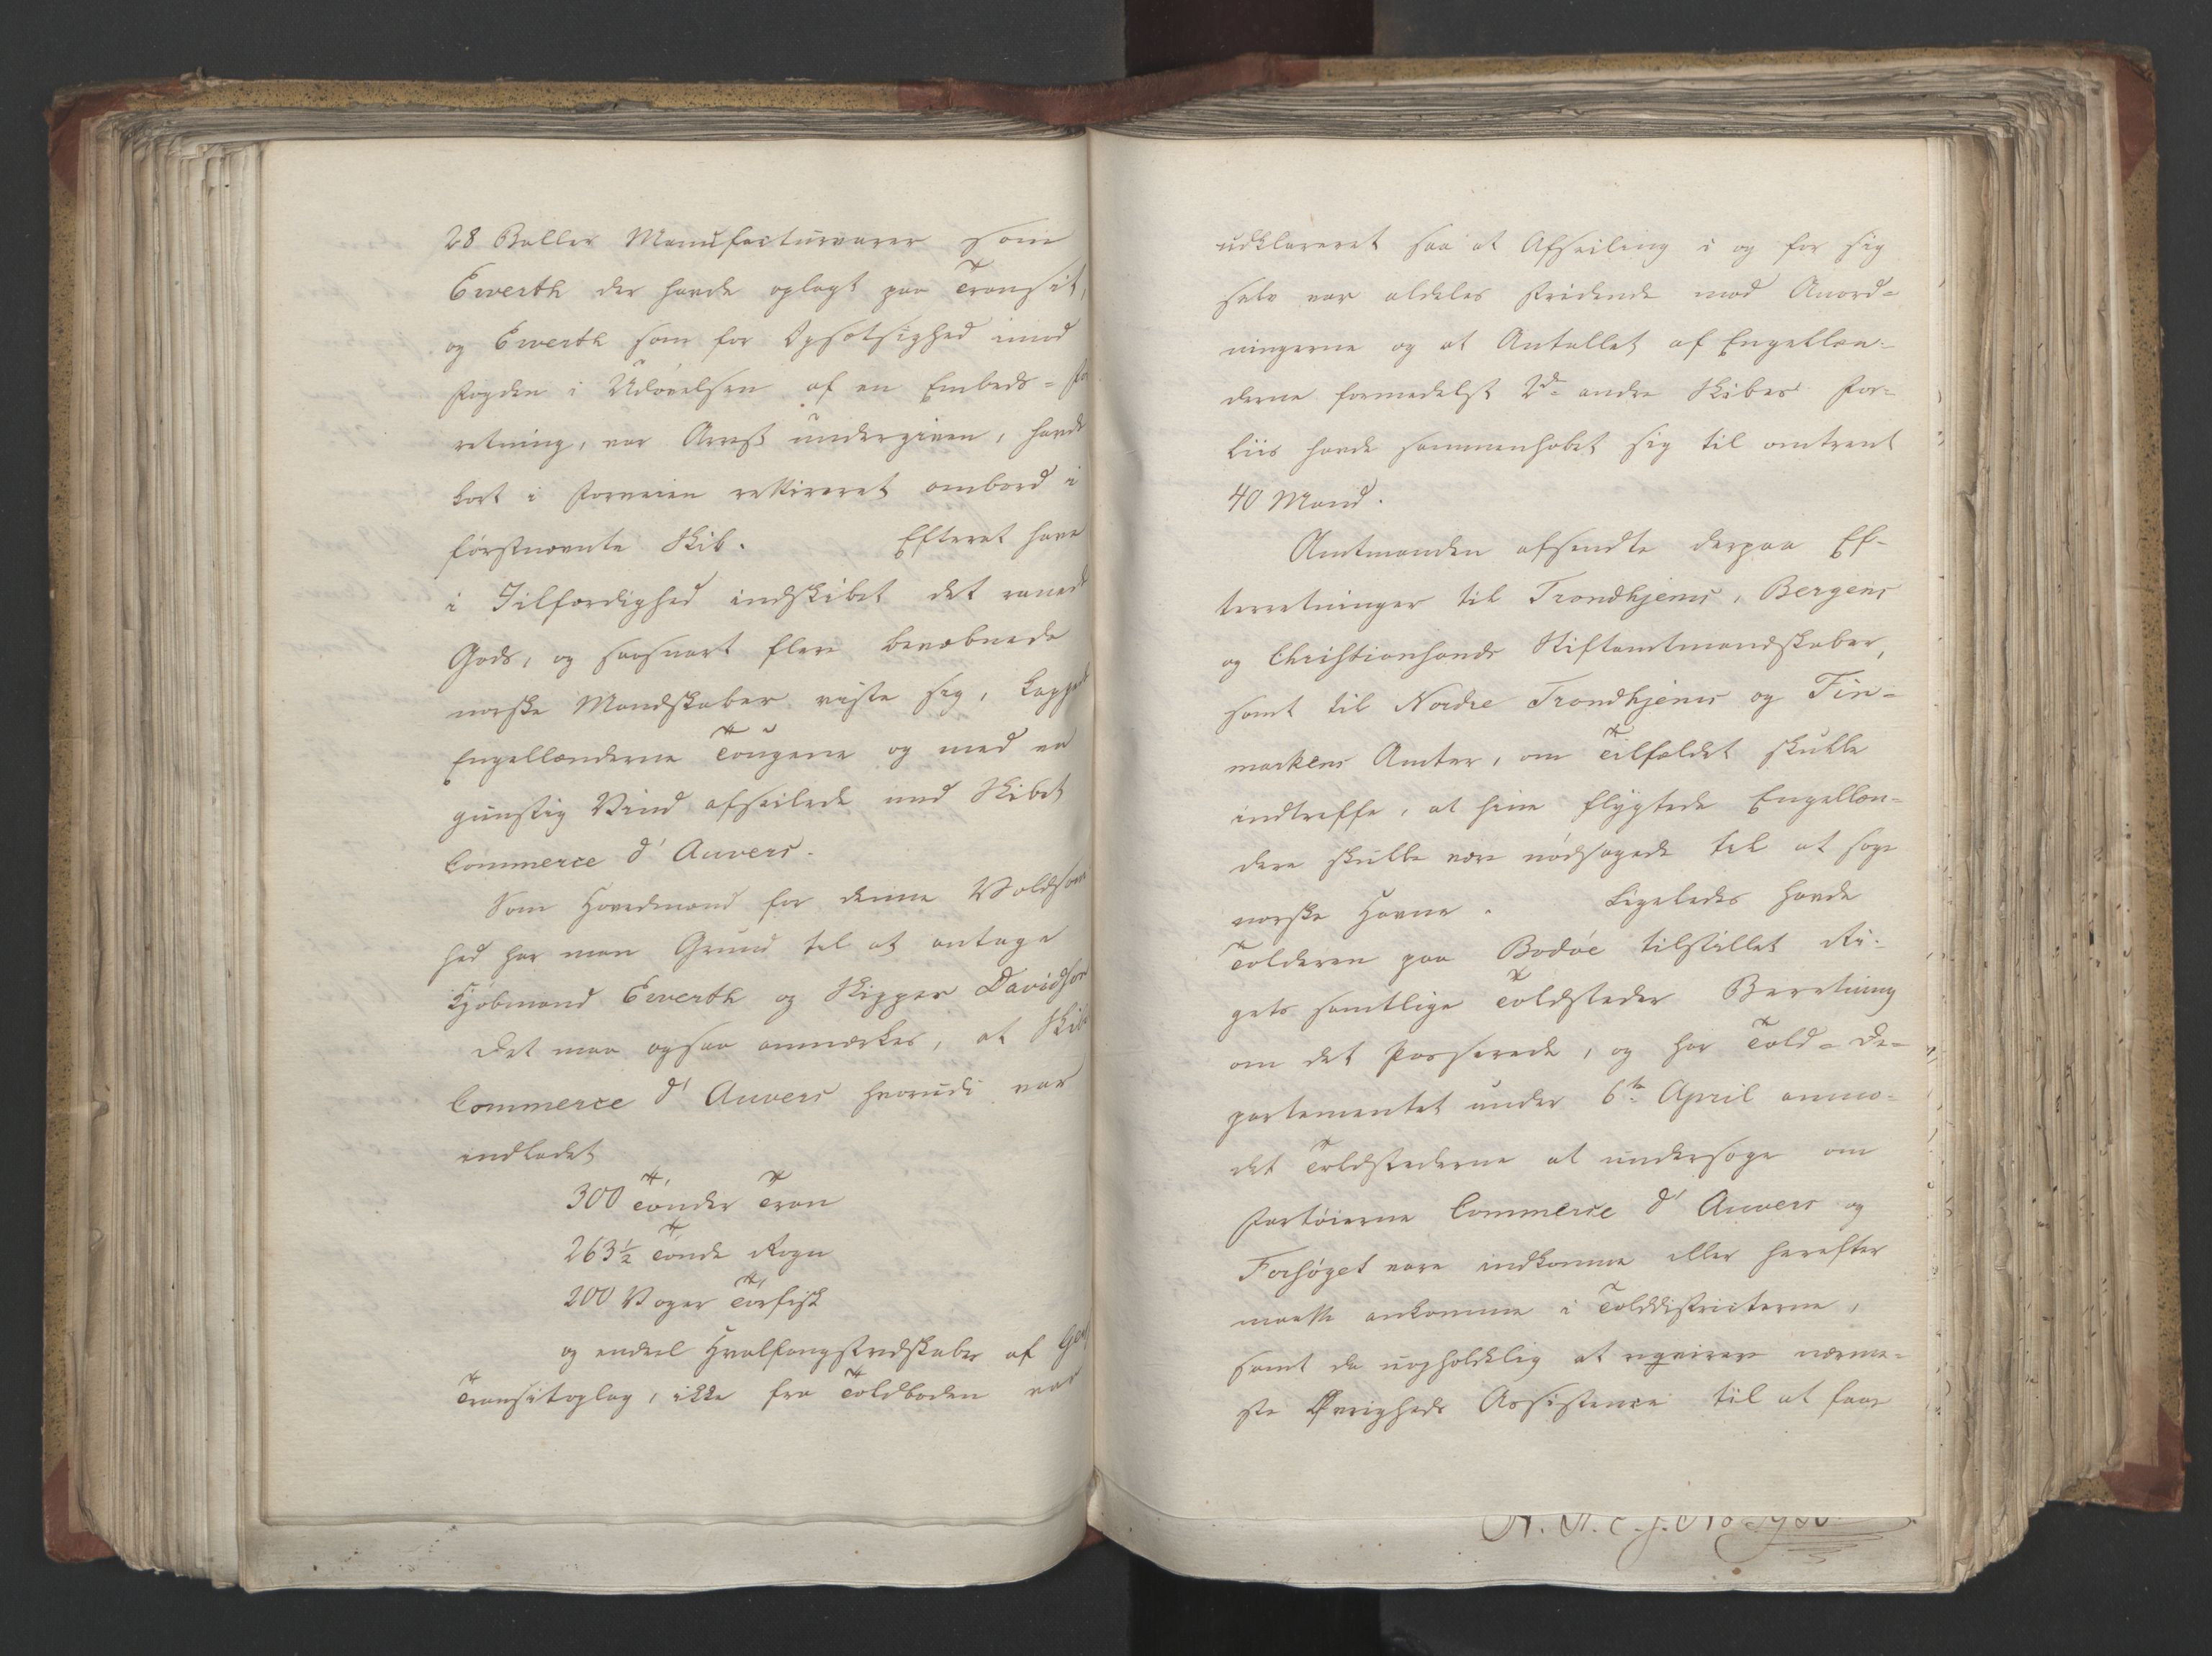 28 Baller Manufacturvarer som
Ewerth der havde oplagt paa Transit,
og Ewerth som for Opsætsighed imod
Fogden i Udøvelsen af en Embeds=
retning, var Arrest undergiven, havde
kort i Forveien retireret ombord i
førstnævnte Skib. Efterat have
i Iilfærdighed indskibet det ranede
Gods, og saasnart flere bevæbnede
norske Mandskaber viste sig, kappede
Engellænderne Tougene og med en
gunstig Vind afseilede med Skibet
Commerce d' Anvers.
Som Hovedmand for denne Voldsom
hed har man Grund til at antage
Kjøbmand Ewerth og Skipper Davidson
Det maa ogsaa anmærkes, at Skibet
Commerce d' Anvers hvorudi var
indladet
300 Tønder Tran
263½ Tønde Rogn
200 Voger Tørfisk
og endeel Hvalfangstredskaber af
Transitoplag, ikke fra Toldboden var
udklareret saa at Afseiling i og for sig
selv var aldeles stridende mod Anord=
ningerne og at Antallet af Engellæn=
derne formedelst 2de andre Skibes For=
liis havde sammenhobet sig til omtrent
40 Mand.
Amtmanden afsendte derpaa Ef-
terretninger til Trondhjems, Bergens
og Christiansands Stiftamtmandskaber,
samt til Nordre Trondhjems og Fin=
markens Amter, om Tilfældet skulle
indtreffe, at hine flygtede Engellæn=
dere skulle være nødsagede til at søge
norske Havne. Ligeledes havde
Tolderen paa Bodøe tilstillet Ri=
gets samtlige Toldsteder Beretning
om det Passerede, og har Told=De=
partementet under 6te April anmo=
det Toldstederne at undersøge om
Fartøierne Commerce d' Anvers og
Forsøget vare indkomne eller herefter
maatte ankomme i Tolddistricterne,
samt da uopholdelig at reqvirere nærme=
ste Øvrigheds Assistence til at faae